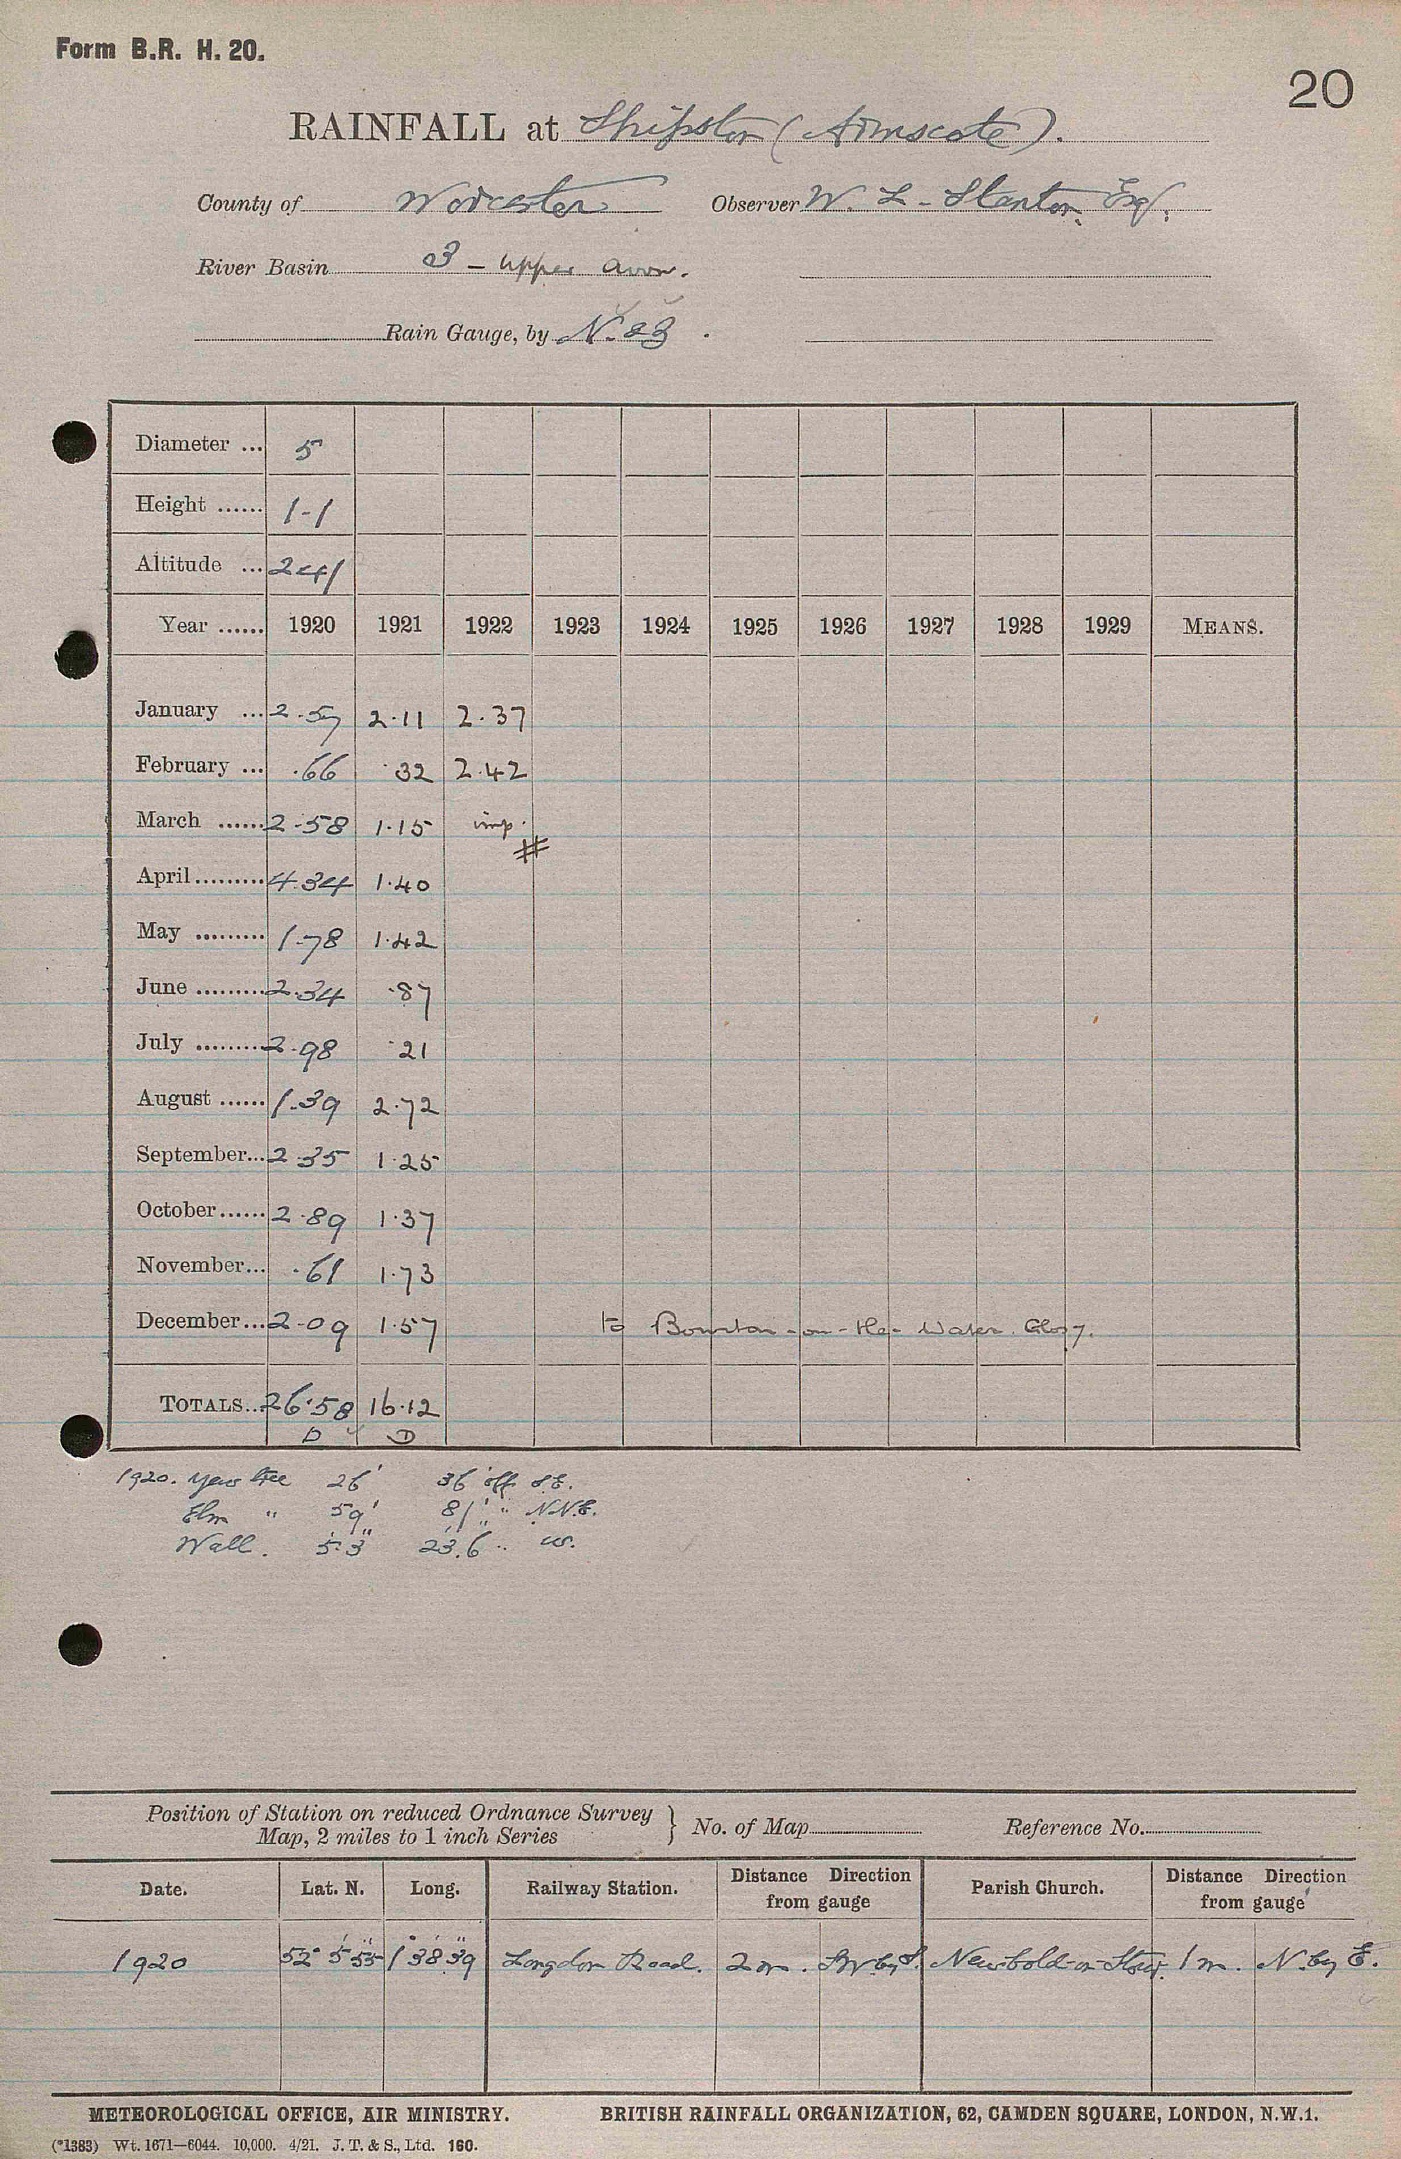 Form B.R. H. 20.
20
RAINFALL at Shipston (Armscote).
County of Worcester Observer W. L. Stanton, Esq.
River Basin 3 - Upper Avon.
Rain Gauge, by N. & Z.
Diameter ... 5
Height ...... 1-1
Altitude ... 241
Year ...... 1920 1921 1922 1923 1924 1925 1926 1927 1928 1929 MEANS.
January ... 2.57 2.11 2.37
February ... .66 .32 2.42
March ...... 2.58 1.15 imp.
#
April ......... 4.34 1.40
May ......... 1.78 1.42
June ......... 2.34 .87
July ......... 2.98 .21
August ...... 1.39 2.72
September... 2.35 1.25
October...... 2.89 1.37
November... .61 1.73
December... 2.09 1.57 to Bourton-on-the-Water. Glos.
TOTALS... 26.58 16.12
D D
1920. Yew tree 26' 36' off S.E.
Elm " 59' 81' " N.N.E.
Wall. 5' 3" 23' 6" " W.
Position of Station on reduced Ordnance Survey Map, 2 miles to 1 inch Series } No. of Map Reference No.
Date. Lat. N. Long. Railway Station. Distance Direction from gauge Parish Church. Distance Direction from gauge
1920 52° 5' 55" 1° 38' 39" Longdon Road. 2 m. SW by S. Newbold-on-Stour. 1 m. N. by E.
METEOROLOGICAL OFFICE, AIR MINISTRY. BRITISH RAINFALL ORGANIZATION, 62, CAMDEN SQUARE, LONDON, N.W.1.
(*1383) Wt. 1671—6044. 10,000. 4/21. J. T. & S., Ltd. 160.